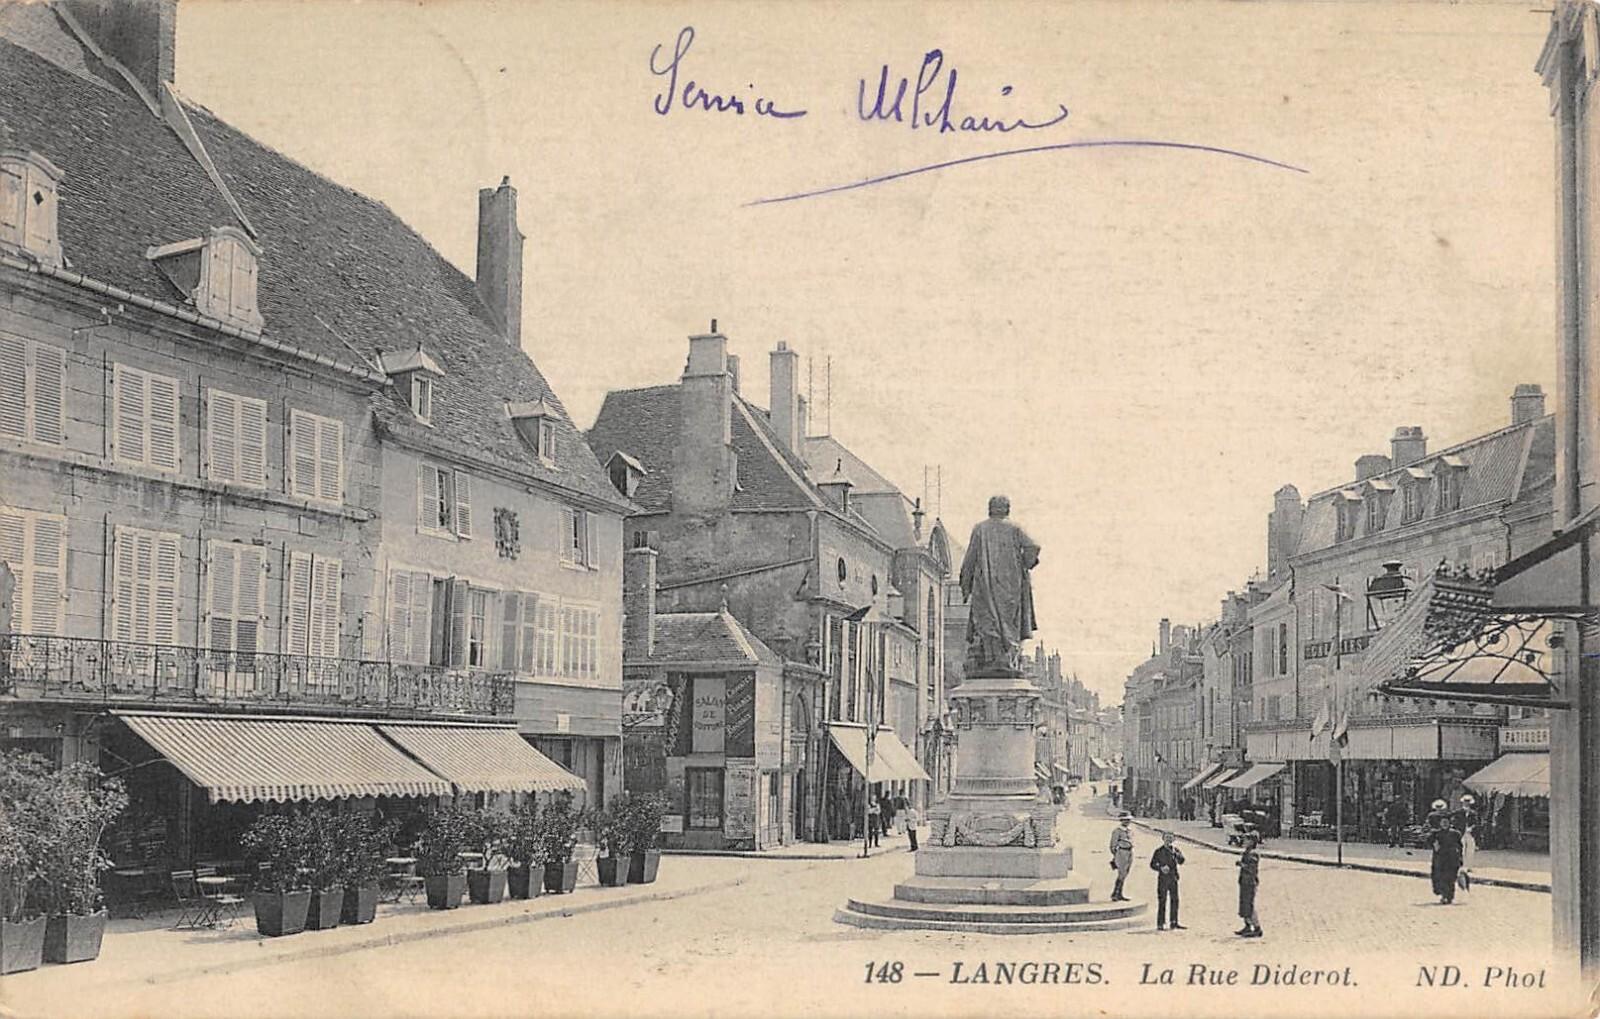 Service Militaire
SALON
DE
PATISSERIE
148 — LANGRES. La Rue Diderot. ND. Phot